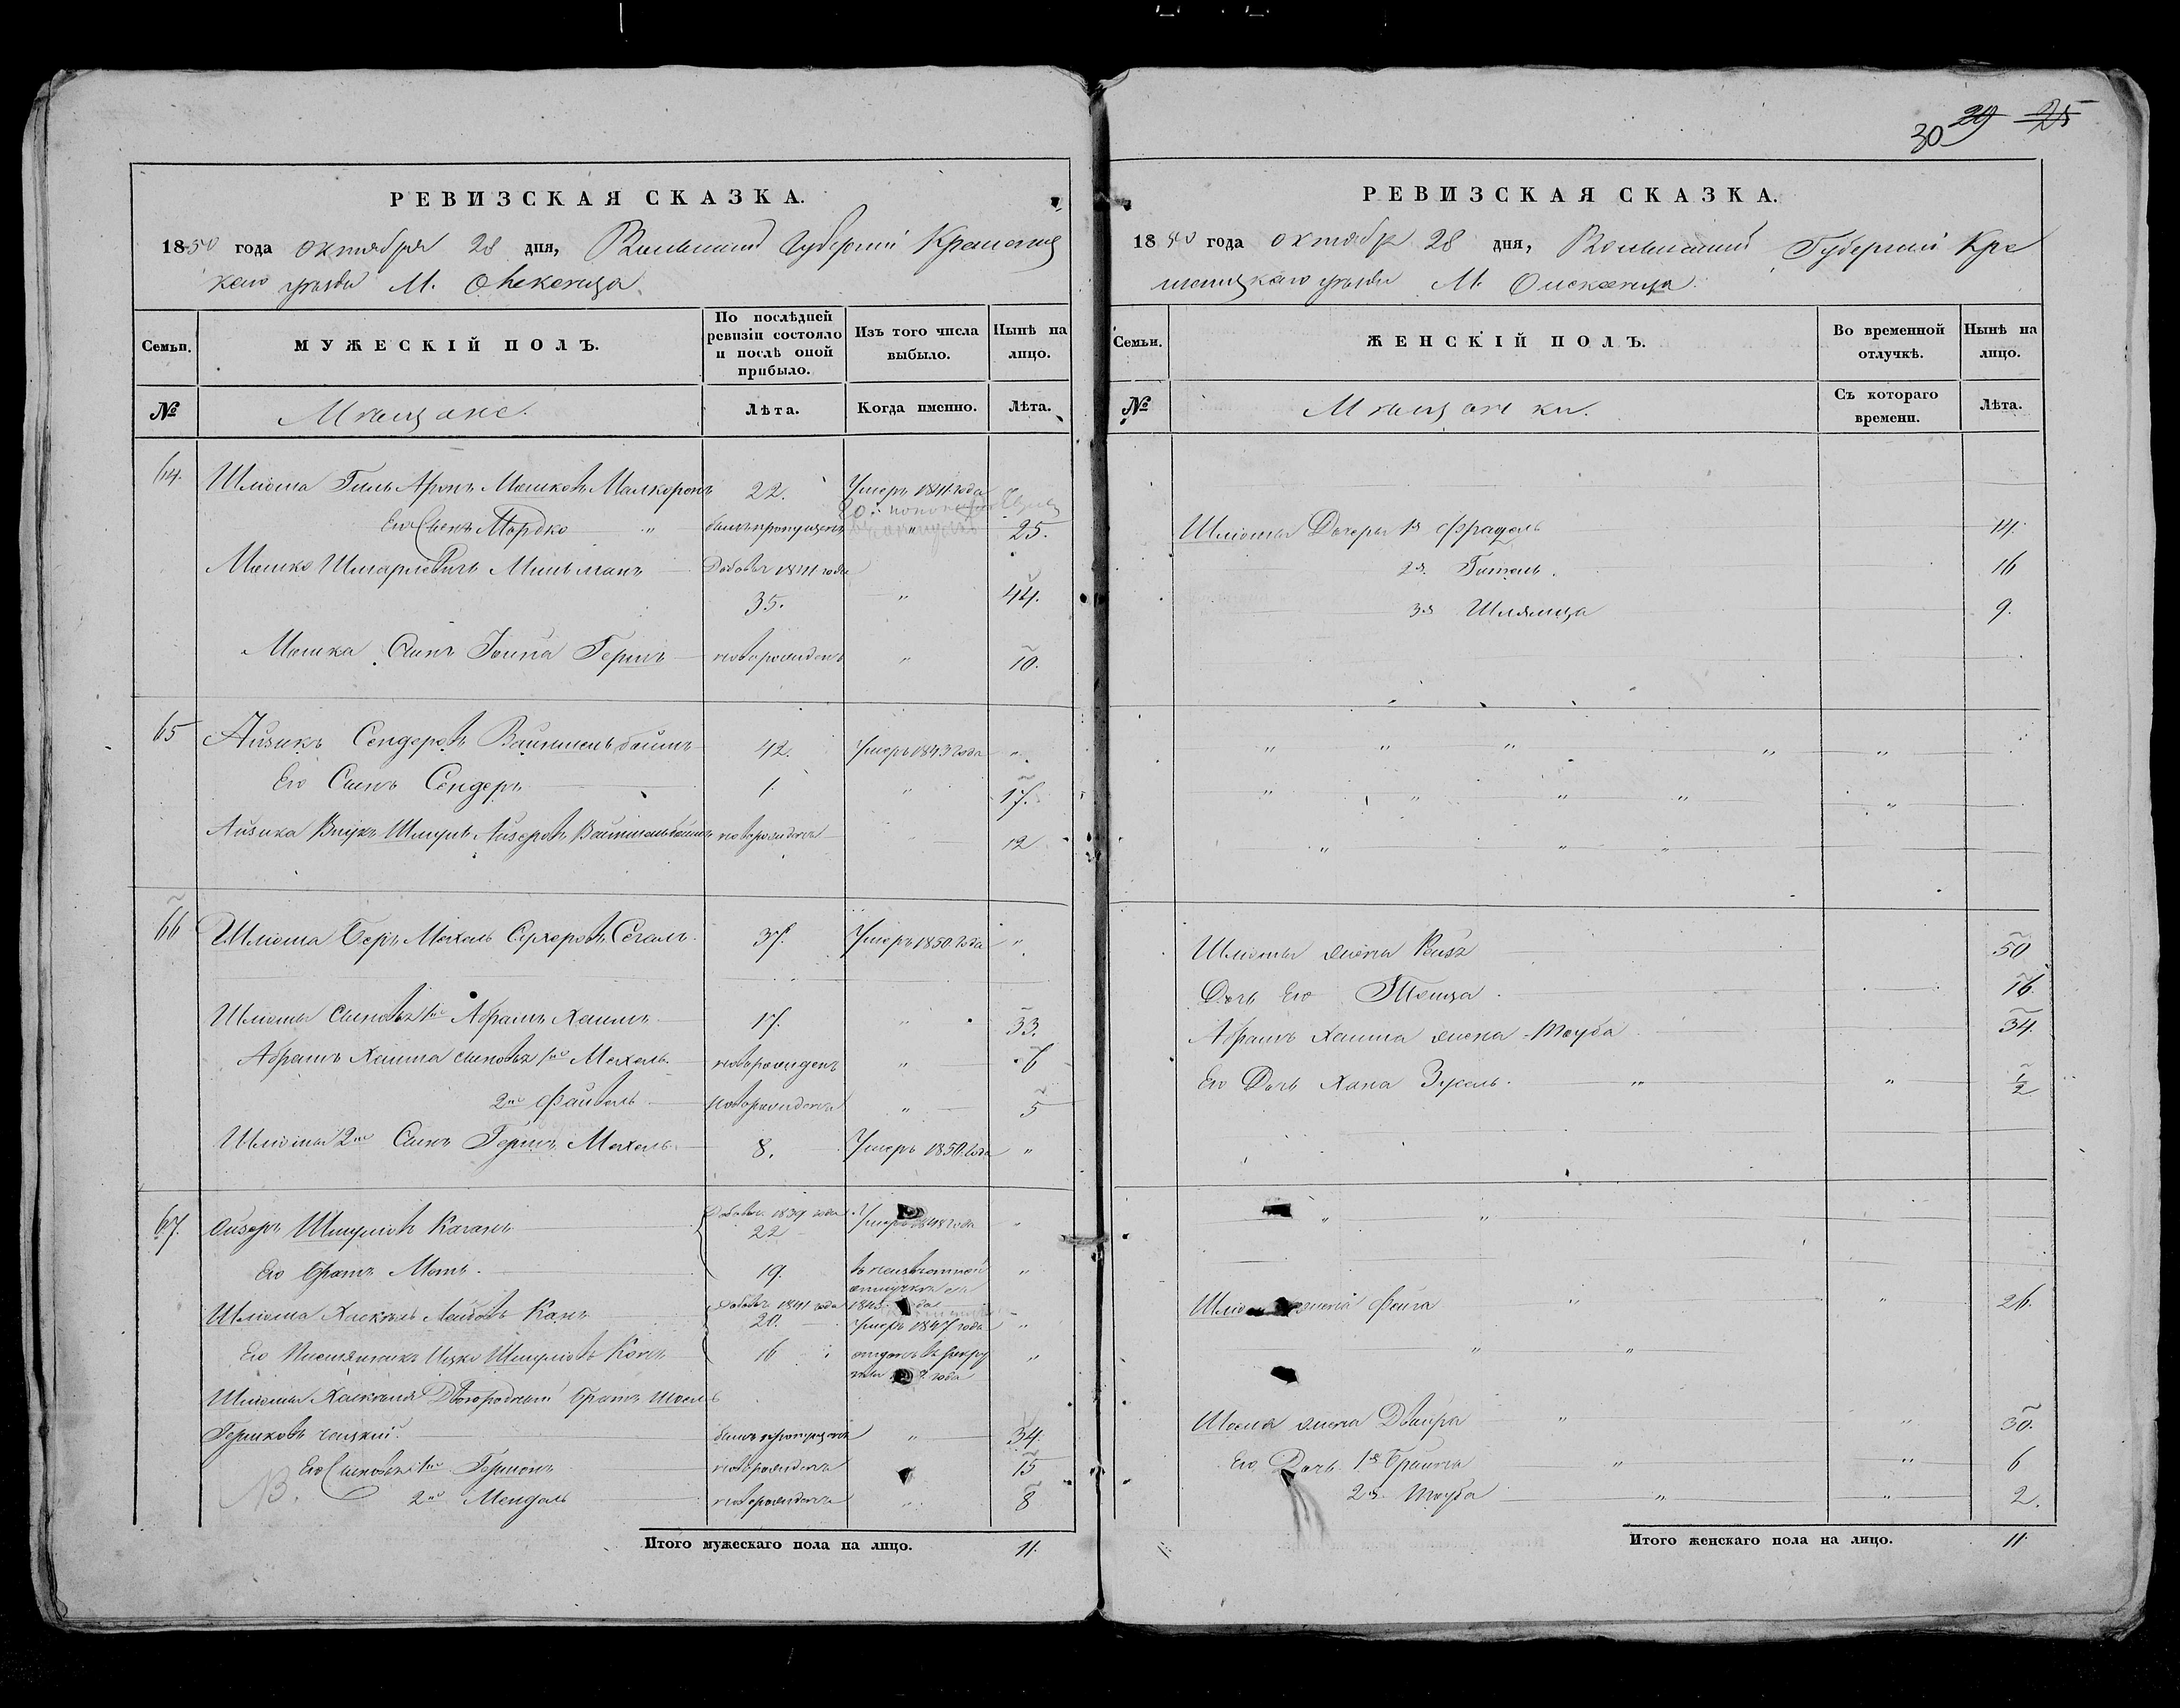 РЕВИЗСКАЯ СКАЗКА.
1850 года октября 28 дня, Волынской Губернiи Кременец
каго уезда М.
Семьи.
МУЖЕСКІЙ ПОЛЪ.
По послѣдней ревизіи состояло и послѣ оной прибыло.
Изъ того числа выбыло.
Нынѣ на лицо.
№
Мещане.
Лѣта.
Когда именно.
Лѣта.
64.
Шлиома Гиль Аронъ Мошковъ 22. Умеръ 1841 года
Его Сынъ Мордко " былъ пропущенъ " 25.
Мошко Шмарiевичъ добавъ 1841 года
35. " 44.
Мошка Сынъ Iонна Гершъ новорожденъ " 10.
65
Айзикъ Сендеровъ Вайтельбоймъ 42. Умеръ 1843 года "
Его Сынъ Сендеръ 1. " 17.
Айзика Внукъ Шмуль Айзеровъ новорожденъ 12
66
Шлиома Беръ Мехель Сухеровъ Сегаль. 37. Умеръ 1850 года "
Шлиомы сыновья 1й Абрамъ Хаимъ 17. " 33.
Абрамъ Хаима сыновья 1й Мехель. новорожденъ " 6
2й Файвель новорожденъ " 5
Шлиомы 2й Сынъ Гершъ Мехель. 8. Умеръ 1850 года "
67.
Ойзеръ Шмулiовъ Каганъ добавъ 1839 года 22 Умеръ 1848 года "
Его Братъ Мотъ. 19. в неизвестной "
отлучке
Шлиома Хаскель Лейбовъ Канъ добавъ 1841 года 20. умеръ 1847 года "
Его Племянникъ Ицко Шмулiовъ Канъ 16 отданъ в рекру "
ты года
Шлиомы Хаскеля Двоюродный братъ
Гершковъ былъ пропущенъ " 34.
Его Сыновья 1й Гершонъ новорожденъ 15
2й Мендель новорожденъ " 8
Итого мужескаго пола на лицо. 11.
30 29 25
РЕВИЗСКАЯ СКАЗКА.
1850 года октябр 28 дня, Волынской Губернiи Кре
менецкаго уезда М.
Семьи.
ЖЕНСКІЙ ПОЛЪ.
Во временной отлучкѣ.
Нынѣ на лицо.
№
Мещанки.
Съ котораго времени.
Лѣта.
Шлиомы Дочеры 1я Фрадель 14.
2я. Гитель. 16
3я 9.
Шлиомы жена Рейзя 50
Дочь Его 16.
Абрамъ Хаима жена Тауба 34.
Его Дочь Хана " " 1/2
жена Фейга " " 26.
жена Двайра " " 30.
Его Дочь 1я Брайна " " 6
2я. Тауба " " 2.
Итого женскаго пола на лицо. 11